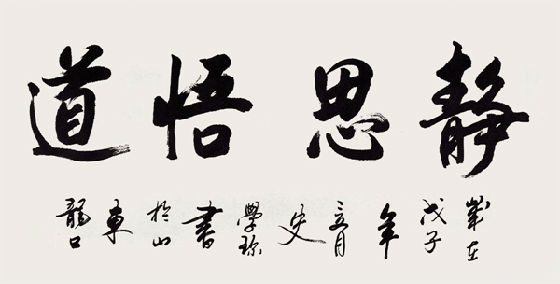 靜思悟道
歲在戊子年月史學書於山東龍口